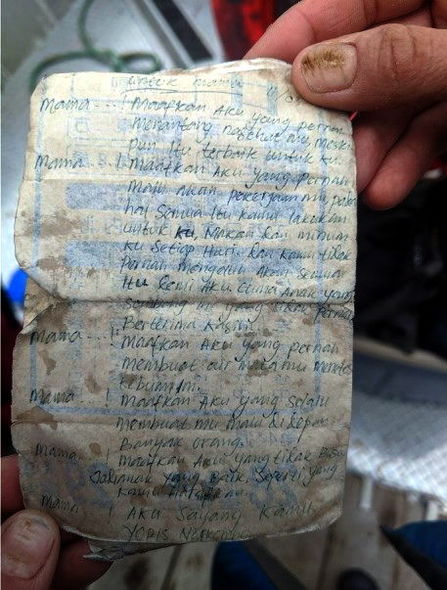 untuk mama
Mama ...! Maafkan Aku yang pernah
Menantang nasehat mu meski
pun itu terbaik untuk ku.
Mama ! Maafkan Aku yang pernah
Malu akan pekerjaan mu pada
hal semua Itu kamu lakukan
untuk ku Makan dan minum
ku Setiap Hari. Dan kamu tidak
Pernah Mengeluh Akan Semua
Itu Demi Aku Cuma Anak yang
ini yang tidak Pernah
Berterima Kasih.
Mama ...! Maafkan Aku yang pernah
Membuat air mata mu Menetes
Mama ! Maafkan Aku yang selalu
membuat mu malu di depan
Banyak orang.
Mama ! Maafkan Aku yang tidak Bisa
Jadi anak yang Baik Seperti yang
kamu Harapkan
Mama ! Aku Sayang Kamu
YORIS